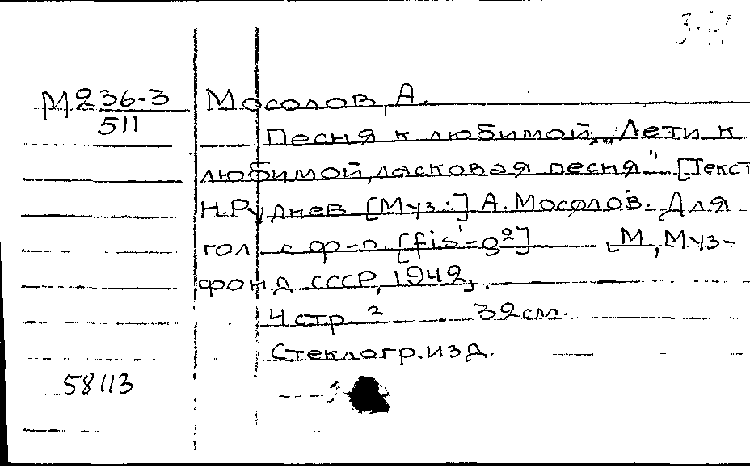 М236-3 Мосолов, А.
511
Песня к любимой „Лети к
любимой, ласковая песня" [Текст
Н.Руднев [Муз.:] А.Мосолов. Для
гол. с ф-п. [fis¹-g²] [М., Муз-
фонд СССР, 1942,
4 стр 32 см.
Стеклогр.изд.
58113